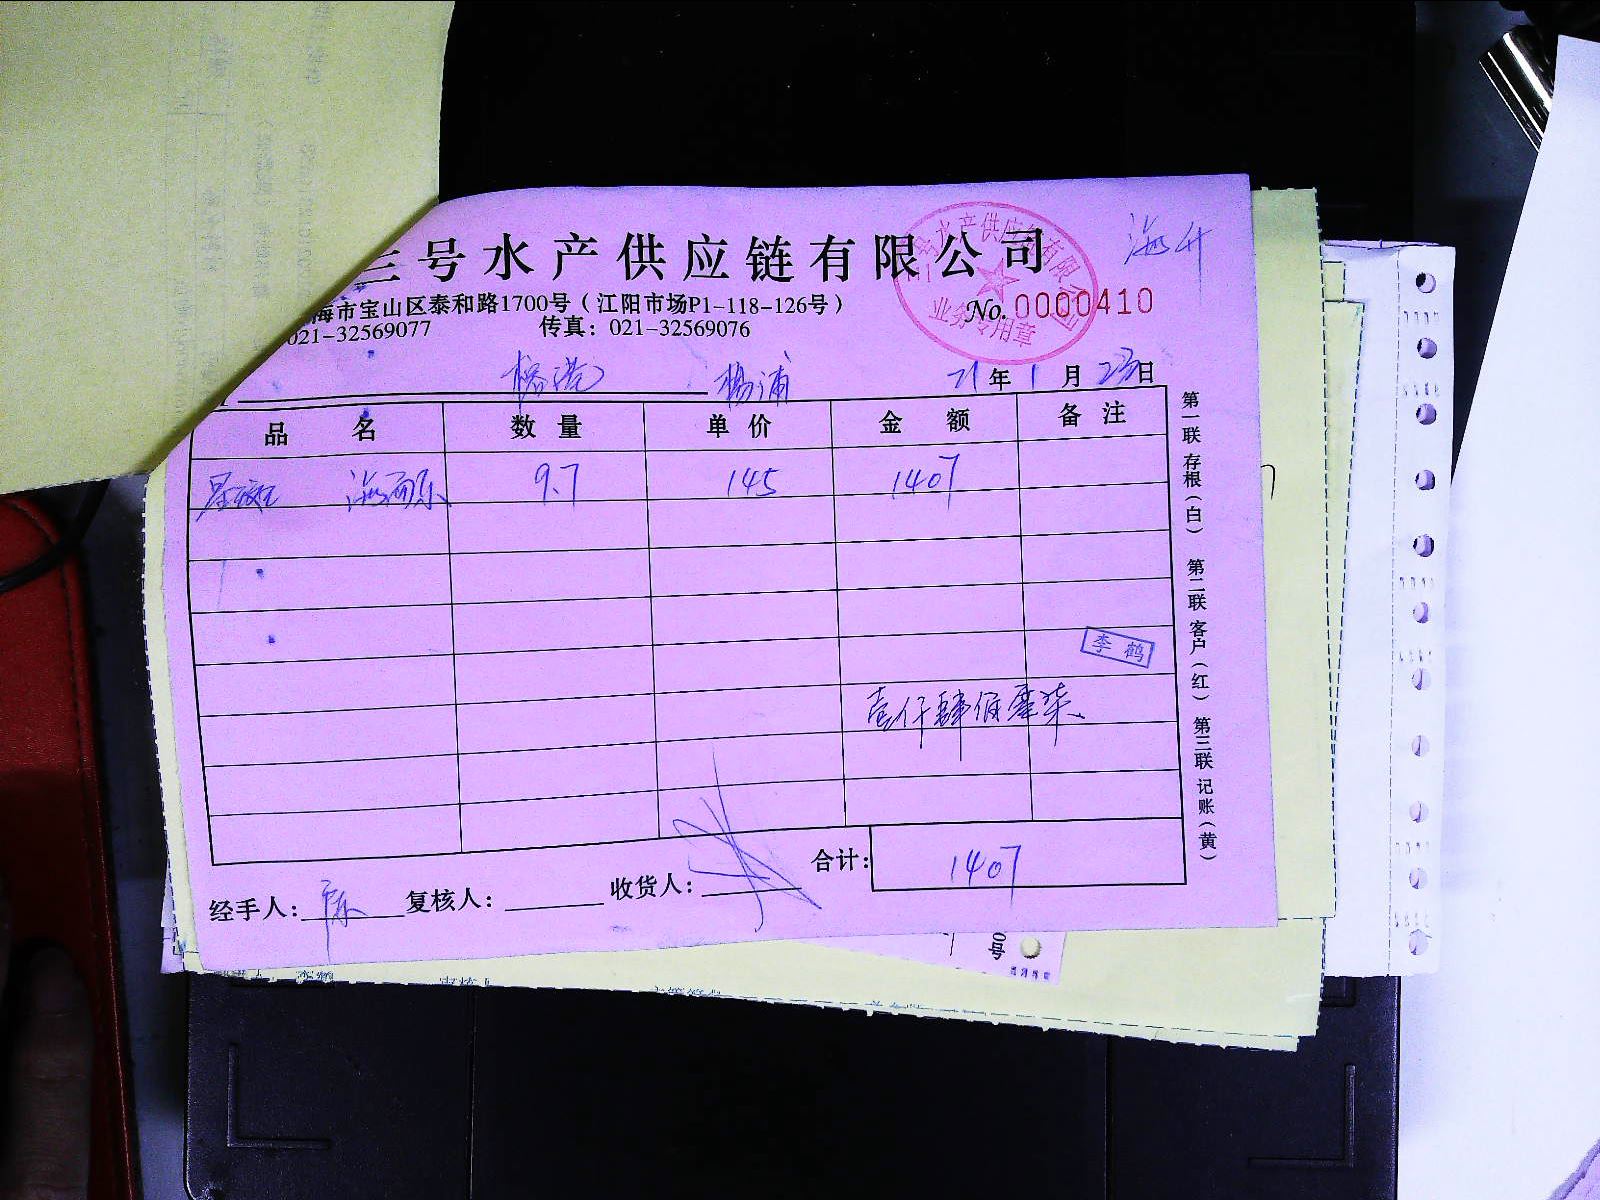 三号水产供应链有限公司
海升
海市宝山区泰和路1700号（江阳市场P1-118-126号）
No. 0000410
021-32569077 传真：021-32569076
三号水产供应链有限公司
业务专用章
杨浦 21年1月23日
品名 数量 单价 金额 备注
9.7 145 1407
李鹤
壹仟肆佰零柒
合计： 1407
经手人： 陈 复核人： 收货人：
第一联 存根（白） 第二联 客户（红） 第三联 记账（黄）
号